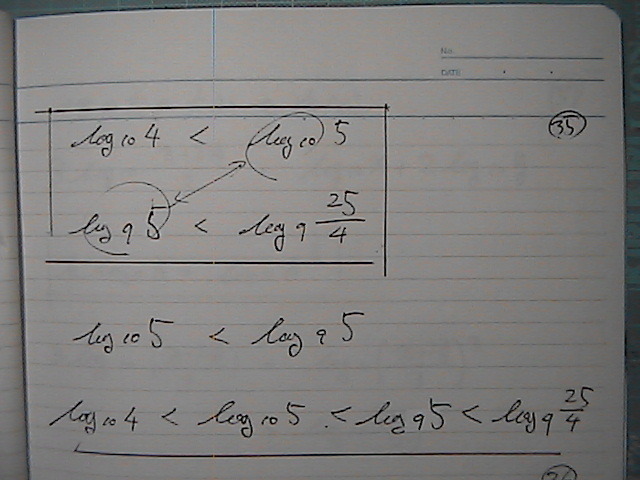 No.
DATE
log₁₀ 4 < log₁₀ 5
35
log₉ 5 < log₉ 25/4
log₁₀ 5 < log₉ 5
log₁₀ 4 < log₁₀ 5 < log₉ 5 < log₉ 25/4